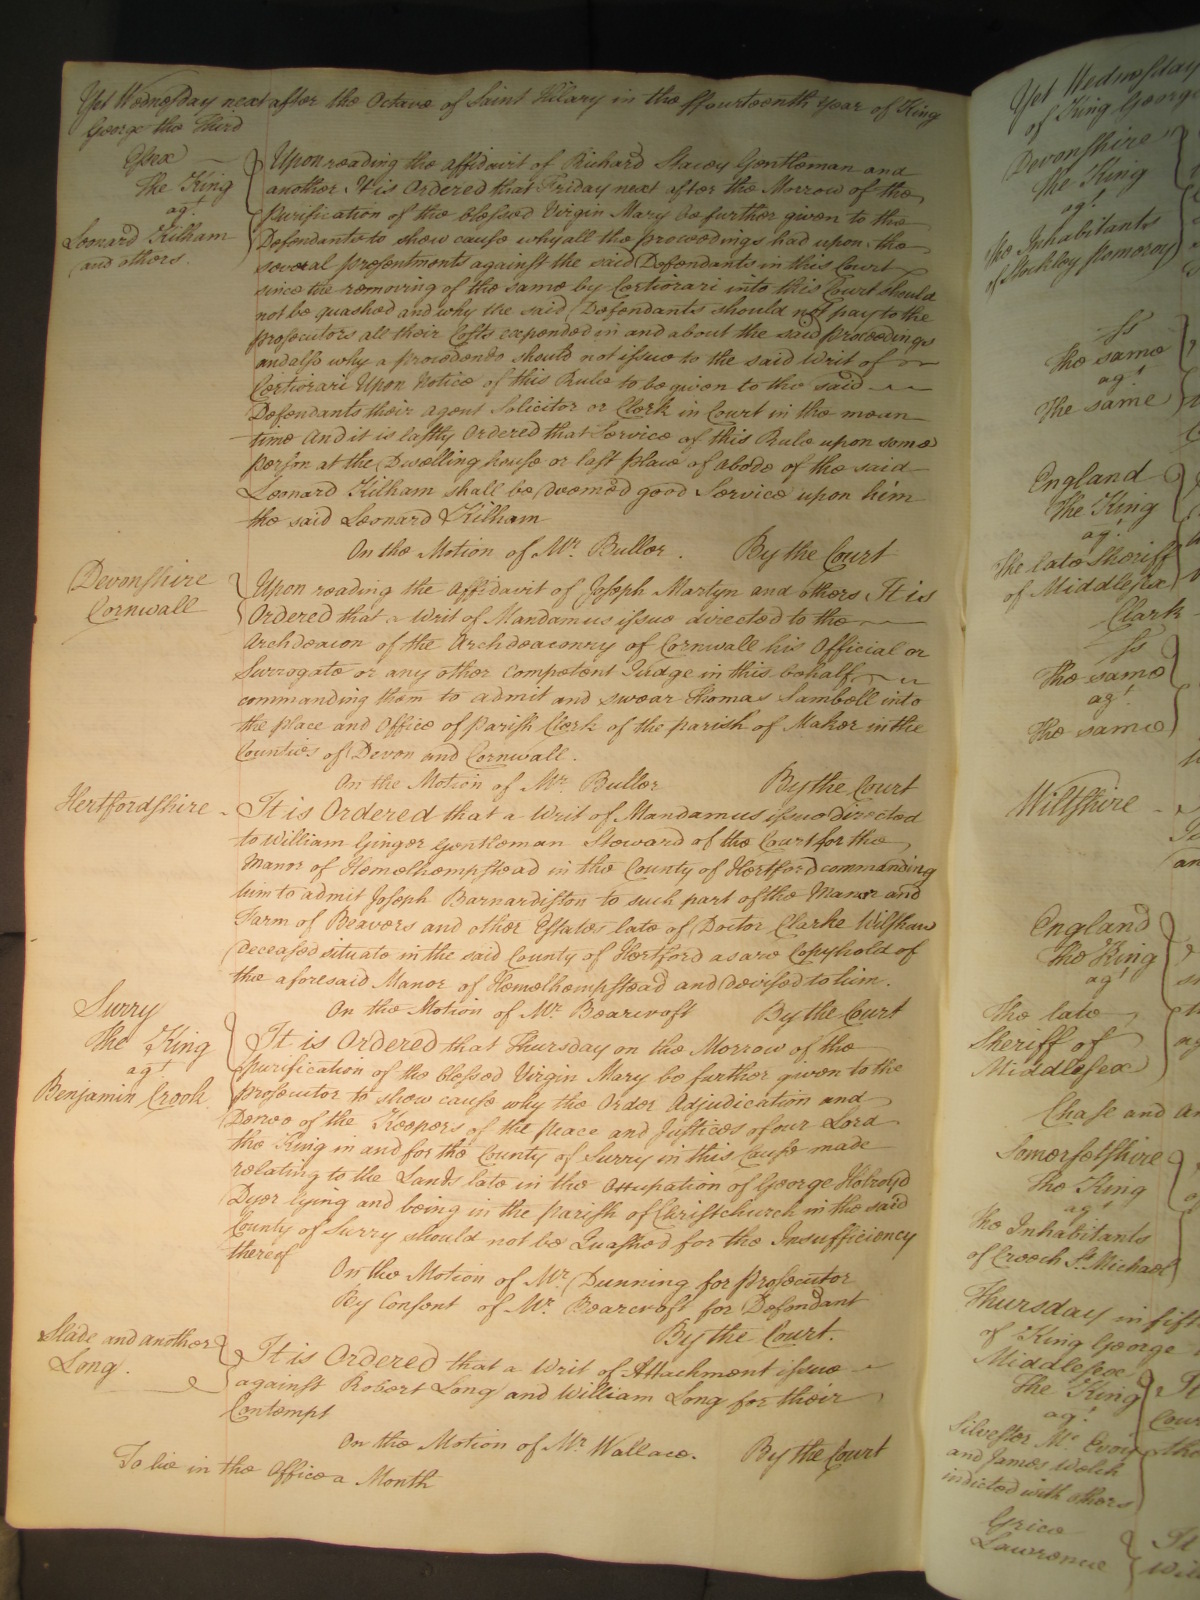 Yet Wednesday next after the Octave of Saint Hilary in the ffourteenth year of King
George the Third
Essex
The King
agt
Leonard Kilham
and others.
Upon reading the affidavit of Richard Stacey Gentleman and
another It is Ordered that Friday next after the Morrow of the
Purification of the blessed Virgin Mary be further given to the
Defendants to show cause why all the proceedings had upon the
several presentments against the said Defendants in this Court
since the removing of the same by Certiorari into this Court should
not be quashed and why the said Defendants should not pay to the
prosecutors all their Costs expended in and about the said proceedings
and also why a procedendo should not issue to the said Writ of
Certiorari Upon Notice of this Rule to be given to the said
Defendants their agent Solicitor or Clerk in Court in the mean
time And it is lastly Ordered that Service of this Rule upon some
person at the Dwelling house or last place of abode of the said
Leonard Kilham shall be deemed good Service upon him
the said Leonard Kilham
On the Motion of Mr. Buller. By the Court
Devonshire
Cornwall
Upon reading the Affidavit of Joseph Martyn and others It is
Ordered that a Writ of Mandamus issue directed to the
Archdeacon of the Archdeaconry of Cornwall his Official or
Surrogate or any other Competent Judge in this behalf
commanding them to admit and swear Thomas Sambell into
the place and Office of Parish Clerk of the parish of Maker in the
Counties of Devon and Cornwall.
On the Motion of Mr. Buller By the Court
Hertfordshire
It is Ordered that a Writ of Mandamus issue Directed
to William Ginger Gentleman Steward of the Court for the
Manor of Hemelhempstead in the County of Hertford commanding
him to admit Joseph Barnardiston to such part of the Manor and
Farm of Beavers and other Estates late of Doctor Clarke Wilshaw
deceased situate in the said County of Hertford as are Copyhold of
the aforesaid Manor of Hemelhempstead and devised to him.
On the Motion of Mr. Bearcroft By the Court
Surry
The King
agt
Benjamin Crook
It is Ordered that Thursday on the Morrow of the
Purification of the blessed Virgin Mary be further given to the
prosecutor to show cause why the Order Adjudication and
Decree of the Keepers of the peace and Justices of our Lord
the King in and for the County of Surry in this Cause made
relating to the Lands late in the Occupation of George Holroyd
Dyer lying and being in the Parish of Christchurch in the said
County of Surry should not be Quashed for the Insufficiency
thereof
On the Motion of Mr. Dunning for prosecutor
By Consent of Mr. Bearcroft for Defendant
By the Court.
Slade and another
Long.
It is Ordered that a Writ of Attachment issue
against Robert Long and William Long for their
Contempt
On the Motion of Mr. Wallace. By the Court
To lie in the Office a Month
Yet Wednesday
of King George
Devonshire
The King
agt
The Inhabitants
of Stockley Pomeroy
Ss
The same
agt
The same
England
The King
agt
The late Sheriff
of Middlesex
Clark
Ss
The same
agt
The same
Wiltshire
England
The King
agt
The late
Sheriff of
Middlesex
Chase and
Somersetshire
The King
agt
The Inhabitants
of Creech St. Michael
Thursday in
of King George
Middlesex
The King
agt
Silvester Mc Evoy
and James Welch
indicted with others
Grice
Lawrence